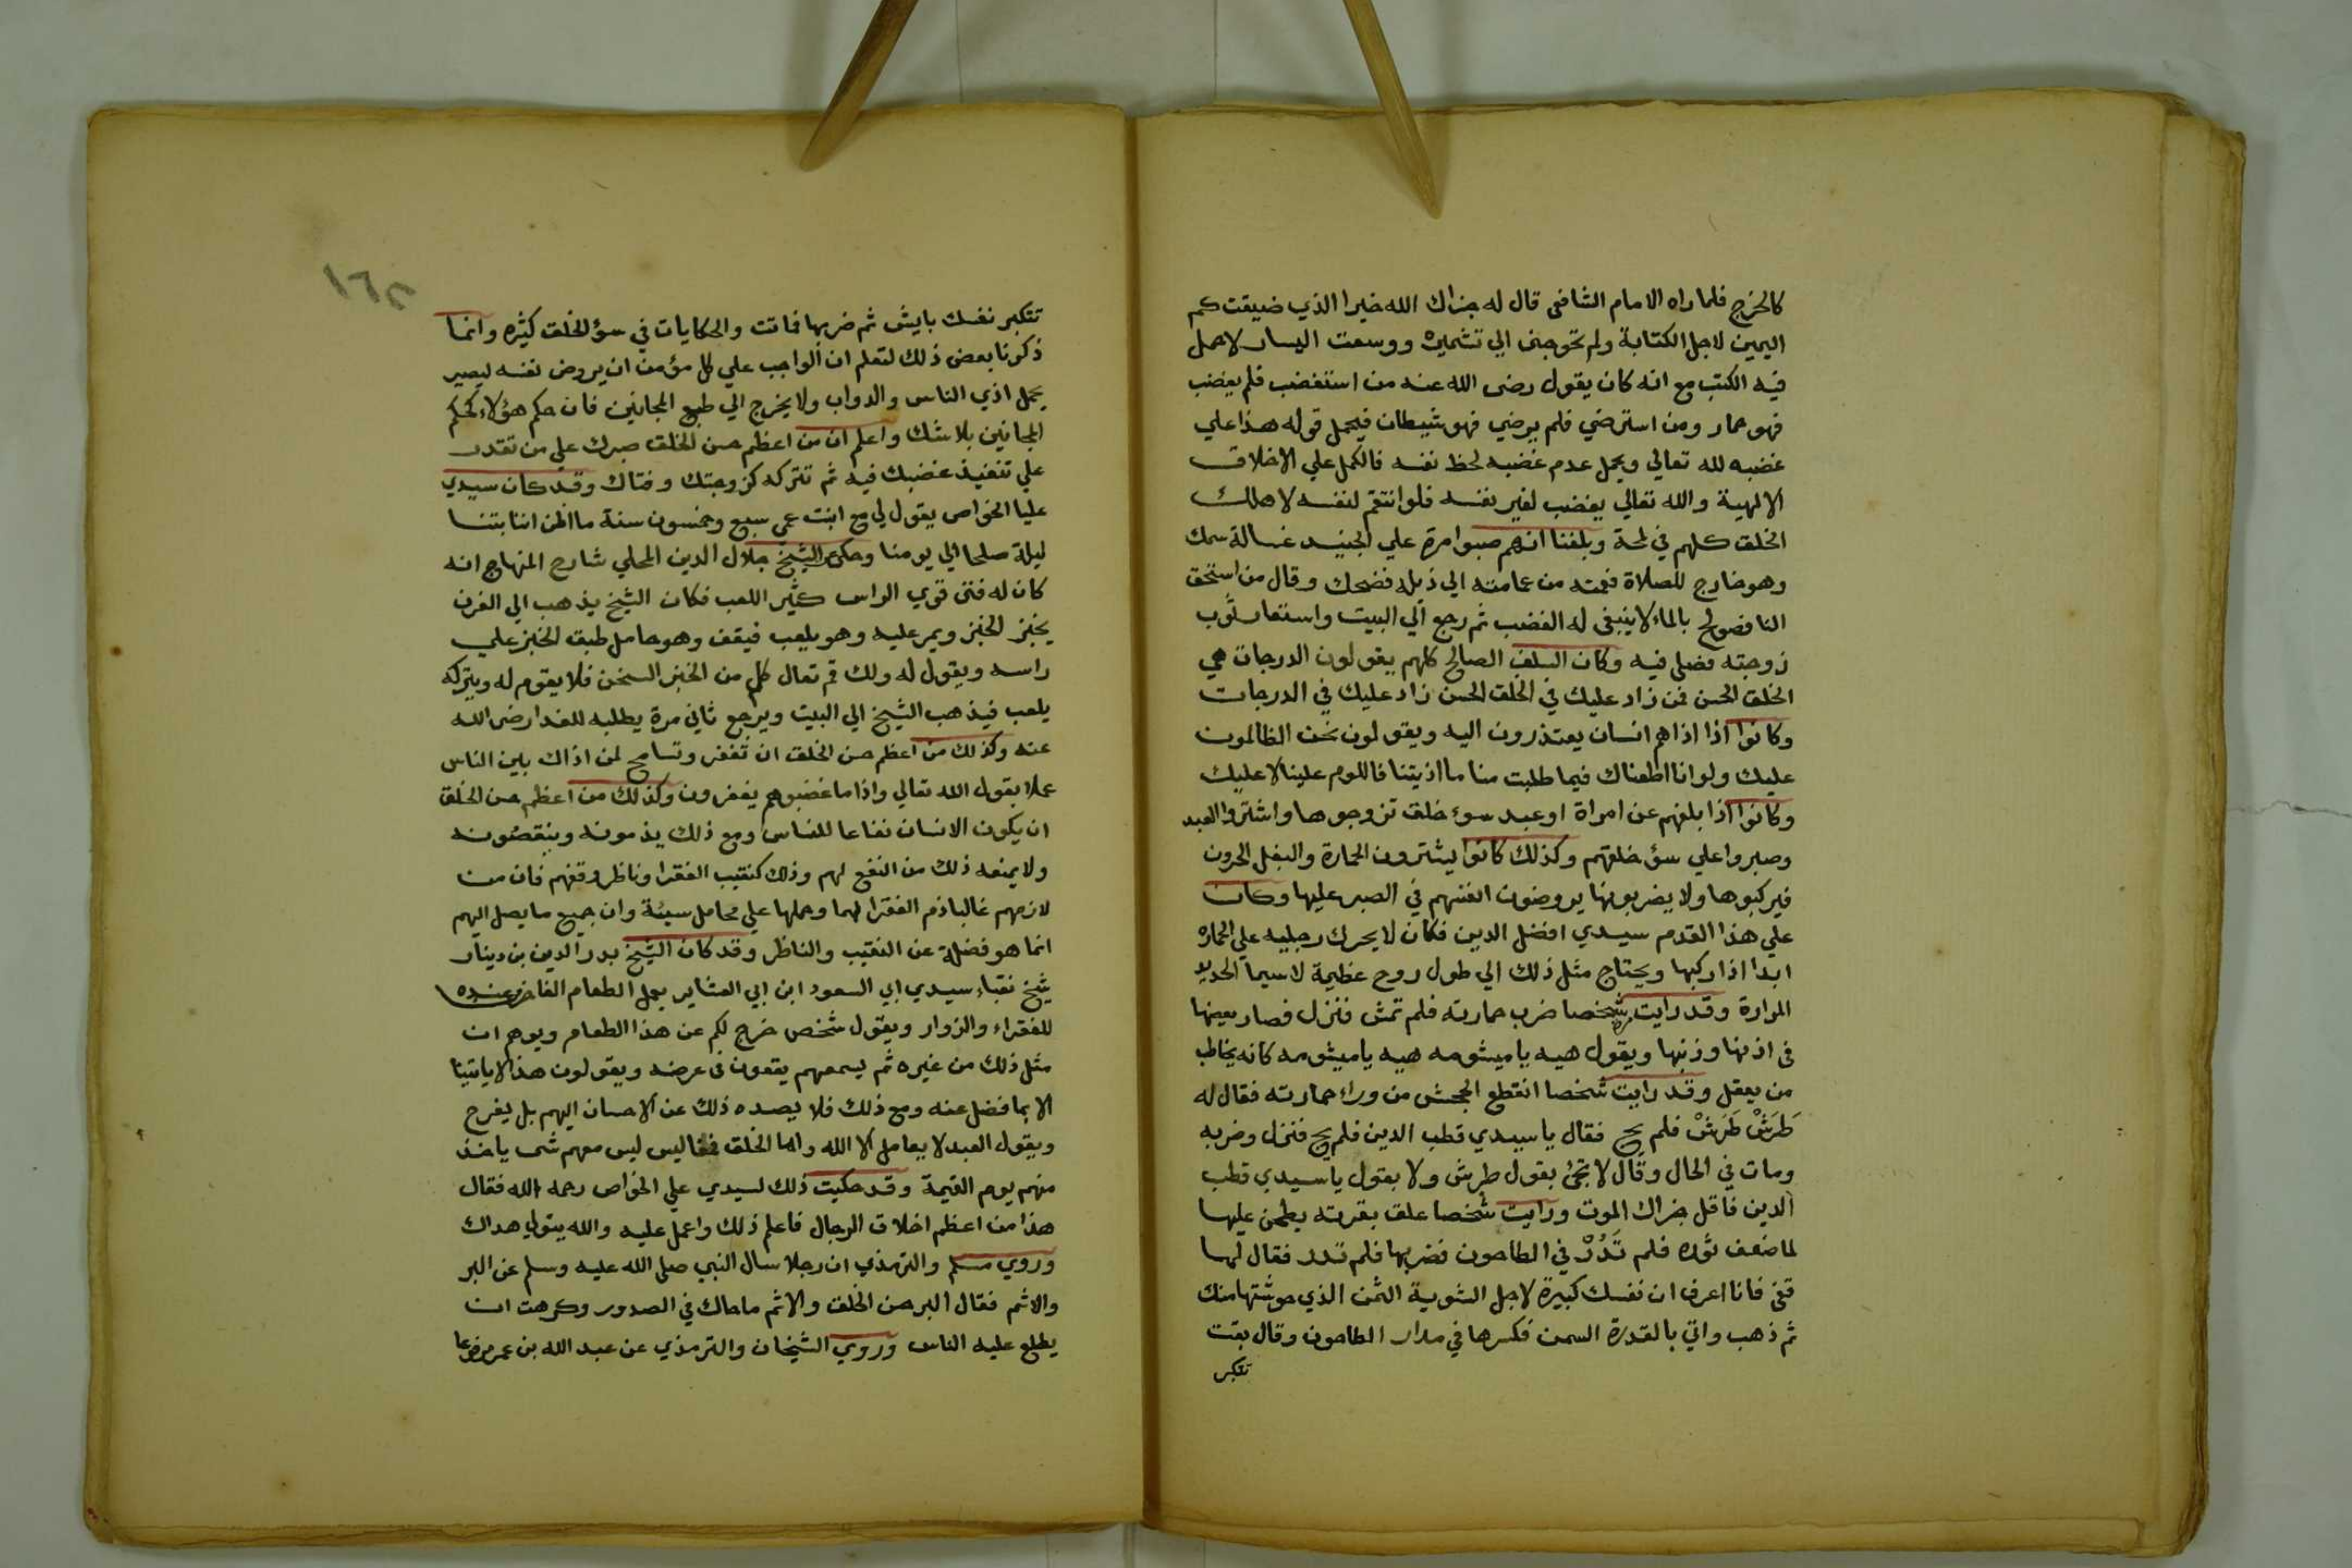 كالخرج فلما راه الامام الشافعى قال له جزاك الله خيرا الذي ضيقت كم
اليمين لاجل الكتابة ولم تحوجنى الي تشميره ووسعت اليسار لاحمل
فيه الكتب مع انه كان يقول رضى الله عنه من استغضب فلم يغضب
فهو حمار ومن استرضي فلم يرضي فهو شيطان فيحمل قوله هذا علي
غضبه لله تعالي ويحمل عدم غضبه لحظ نفسه فالكمل علي الاخلاق
الالهية والله تعالي يغضب لغير نفسه فلو انتقم لنفسه لاهلك
الخلق كلهم في لمحة وبلغنا انهم صبوا مرة علي الجنيد غسالة سمك
وهو خارج للصلاة فعمته من عمامته الي ذيله فضحك وقال من استحق
النار فصولح بالماء لا ينبغى له الغضب ثم رجع الي البيت واستعار ثوب
زوجته فصلى فيه وكان السلف الصالح كلهم يقولون الدرجات هي
الخلق الحسن فمن زاد عليك في الخلق الحسن زاد عليك في الدرجات
وكانوا اذا اذاهم انسان يعتذرون اليه ويقولون نحن الظالمون
عليك ولو انا اطعناك فيما طلبت منا ما اذيتنا فاللوم علينا لا عليك
وكانوا اذا بلغهم عن امراة او عبد سوء خلق تزوجوها واشتروا العبد
وصبروا علي سؤ خلقهم وكذلك كانوا يشترون الحمارة والبغل الحرون
فيركبوها ولا يضربونها يروضون انفسهم في الصبر عليها وكان
علي هذا القدم سيدي افضل الدين فكان لا يحرك رجليه علي الحماره
ابدا اذا ركبها ويحتاج مثل ذلك الي طول روح عظيمة لاسيما الحديد
المرارة وقد رايت مرة شخصا ضرب حمارته فلم تمش فنزل فصار يعضها
فى اذنها وزنبها ويقول هيه ياميشومه هيه ياميشومه كانه يخاطب
من يعقل وقد رايت شخصا انقطع الجحش من وراء حمارته فقال له
طَرَشْ طَرَشْ فلم يج فقال يا سيدي قطب الدين فلم يج فنزل وضربه
ومات في الحال وقال لا تجئ بقول طرش ولا بقول يا سيدي قطب
الدين فاقل جزاك الموت ورايت شخصا علق بقرته يطحن عليها
لما ضعف ثوره فلم تَدُرْ في الطاحون فضربها فلم تدر فقال لها
قفى فانا اعرف ان نفسك كبيرة لاجل الشوية السمن الذي حوشتها منك
ثم ذهب واتي بالقدرة السمن فكسرها في مدار الطاحون وقال بقت
تتكبر
١٦٢
تتكبر نفسك بايش ثم ضربها فماتت والحكايات في سؤ الخلق كثيره وانما
ذكرنا بعض ذلك لتعلم ان الواجب علي كل مؤمن ان يروض نفسه ليصير
يحمل اذي الناس والدواب ولا يخرج الي طبع المجانين فان حكم هؤلاء كحكم
المجانين بلا شك واعلم ان من اعظم حسن الخلق صبرك علي من تقدر
علي تنفيذ غضبك فيه ثم تتركه كزوجتك وفتاك وقد كان سيدي
عليا الخواص يقول لي مع ابنت عمى سبع وخمسون سنة ما اظن اننا بتنا
ليلة صلحا الي يومنا وحكى الشيخ جلال الدين المحلي شارح المنهاج انه
كان له فتى قوي الراس كثير اللعب فكان الشيخ يذهب الي الفرن
يخبز الخبز ويمر عليه وهو يلعب فيقف وهو حامل طبق الخبز علي
راسه ويقول له ولك قم تعال كل من الخبز السخن فلا يقوم له ويتركه
يلعب فيذهب الشيخ الي البيت ويرجع ثاني مرة يطلبه للغدا رضى الله
عنه وكذلك من اعظم حسن الخلق ان تغفر وتسامح لمن اذاك بين الناس
عملا بقول الله تعالي واذا ما غضبوهم يغفرون وكذلك من اعظم حسن الخلق
ان يكون الانسان نفاعا للناس ومع ذلك يذمونه وينقصونه
ولا يمنعه ذلك من النفع لهم وذلك كنقيب الفقرا وناظر وقفهم فان من
لازمهم غالبا ذم الفقرا لهما وحملها علي محامل سيئة وان جميع ما يصل اليهم
انما هو فضلة عن النقيب والناظر وقد كان الشيخ بدر الدين بن دينار
شيخ نقباء سيدي ابي السعود ابن ابي العشاير يعمل الطعام الفاخر من عنده
للفقراء والزوار ويقول شخص خرج لكم عن هذا الطعام ويوهم ان
مثل ذلك من غيره ثم يسمعهم يقعون فى عرضه ويقولون هذا لا ياتينا
الا بما فضل عنه ومع ذلك فلا يصده ذلك عن الاحسان اليهم بل يفرح
ويقول العبد لا يعامل الا الله واما الخلق فمفاليس ليس معهم شى ياخذ
منهم يوم القيمة وقد حكيت ذلك لسيدي علي الخواص رحمه الله فقال
هذا من اعظم اخلاق الرجال فاعلم ذلك واعمل عليه والله يتولي هداك
وروي مسلم والترمذي ان رجلا سال النبي صلى الله عليه وسلم عن البر
والاثم فقال البر حسن الخلق والاثم ما حاك في الصدور وكرهت ان
يطلع عليه الناس وروي الشيخان والترمذي عن عبد الله بن عمر مرفوعا